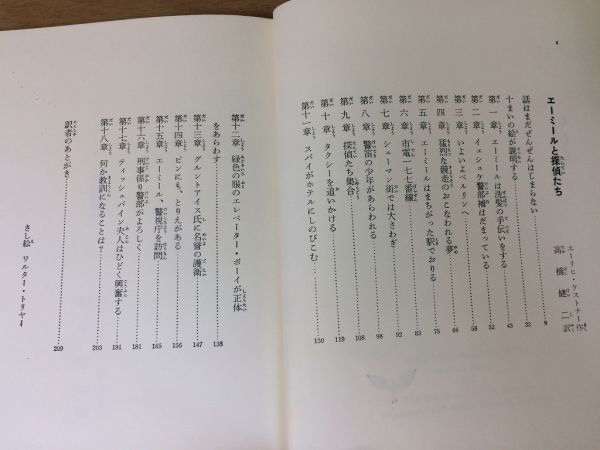 4
エーミールと探偵たち
エーリヒ・ケストナー作
高橋健二訳
話はまだぜんぜんはじまらない……9
十まいの絵が説明する……23
第一章 エーミールは洗髪の手伝いをする……43
第二章 イェシュケ警部補はだまっている……52
第三章 いよいよベルリンへ……58
第四章 猛烈な競走のおこなわれる夢……66
第五章 エーミールはまちがった駅でおりる……75
第六章 市電一七七番線……83
第七章 シューマン街では大さわぎ……92
第八章 警笛の少年があらわれる……98
第九章 探偵たち集合……108
第十章 タクシーを追いかける……119
第十一章 スパイがホテルにしのびこむ……130
第十二章 緑色の服のエレベーター・ボーイが正体
をあらわす……138
第十三章 グルントアイス氏に名誉の護衛……147
第十四章 ピンにも、とりえがある……156
第十五章 エーミール、警視庁を訪問……165
第十六章 刑事係り警部がよろしく……181
第十七章 ティッシュバイン夫人はひどく興奮する……191
第十八章 何か教訓になることは?……203
訳者のあとがき……209
さし絵 ワルター・トリヤ4